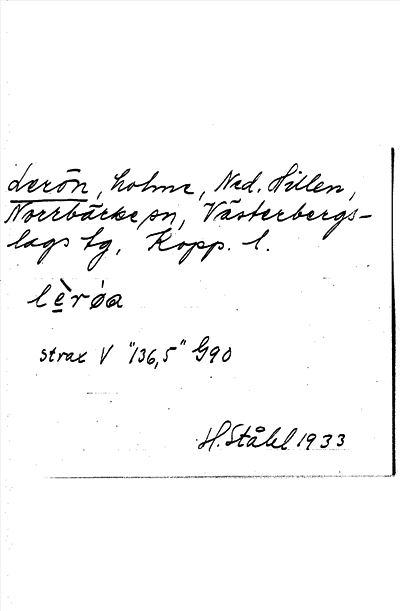 Lerön, holme, Ned. Hillen,
Norrbärke sn, Västerbergs-
lags tg, Kopp. l.
lè̱røa
strax V "136,5" G90
H. Ståhl 1933